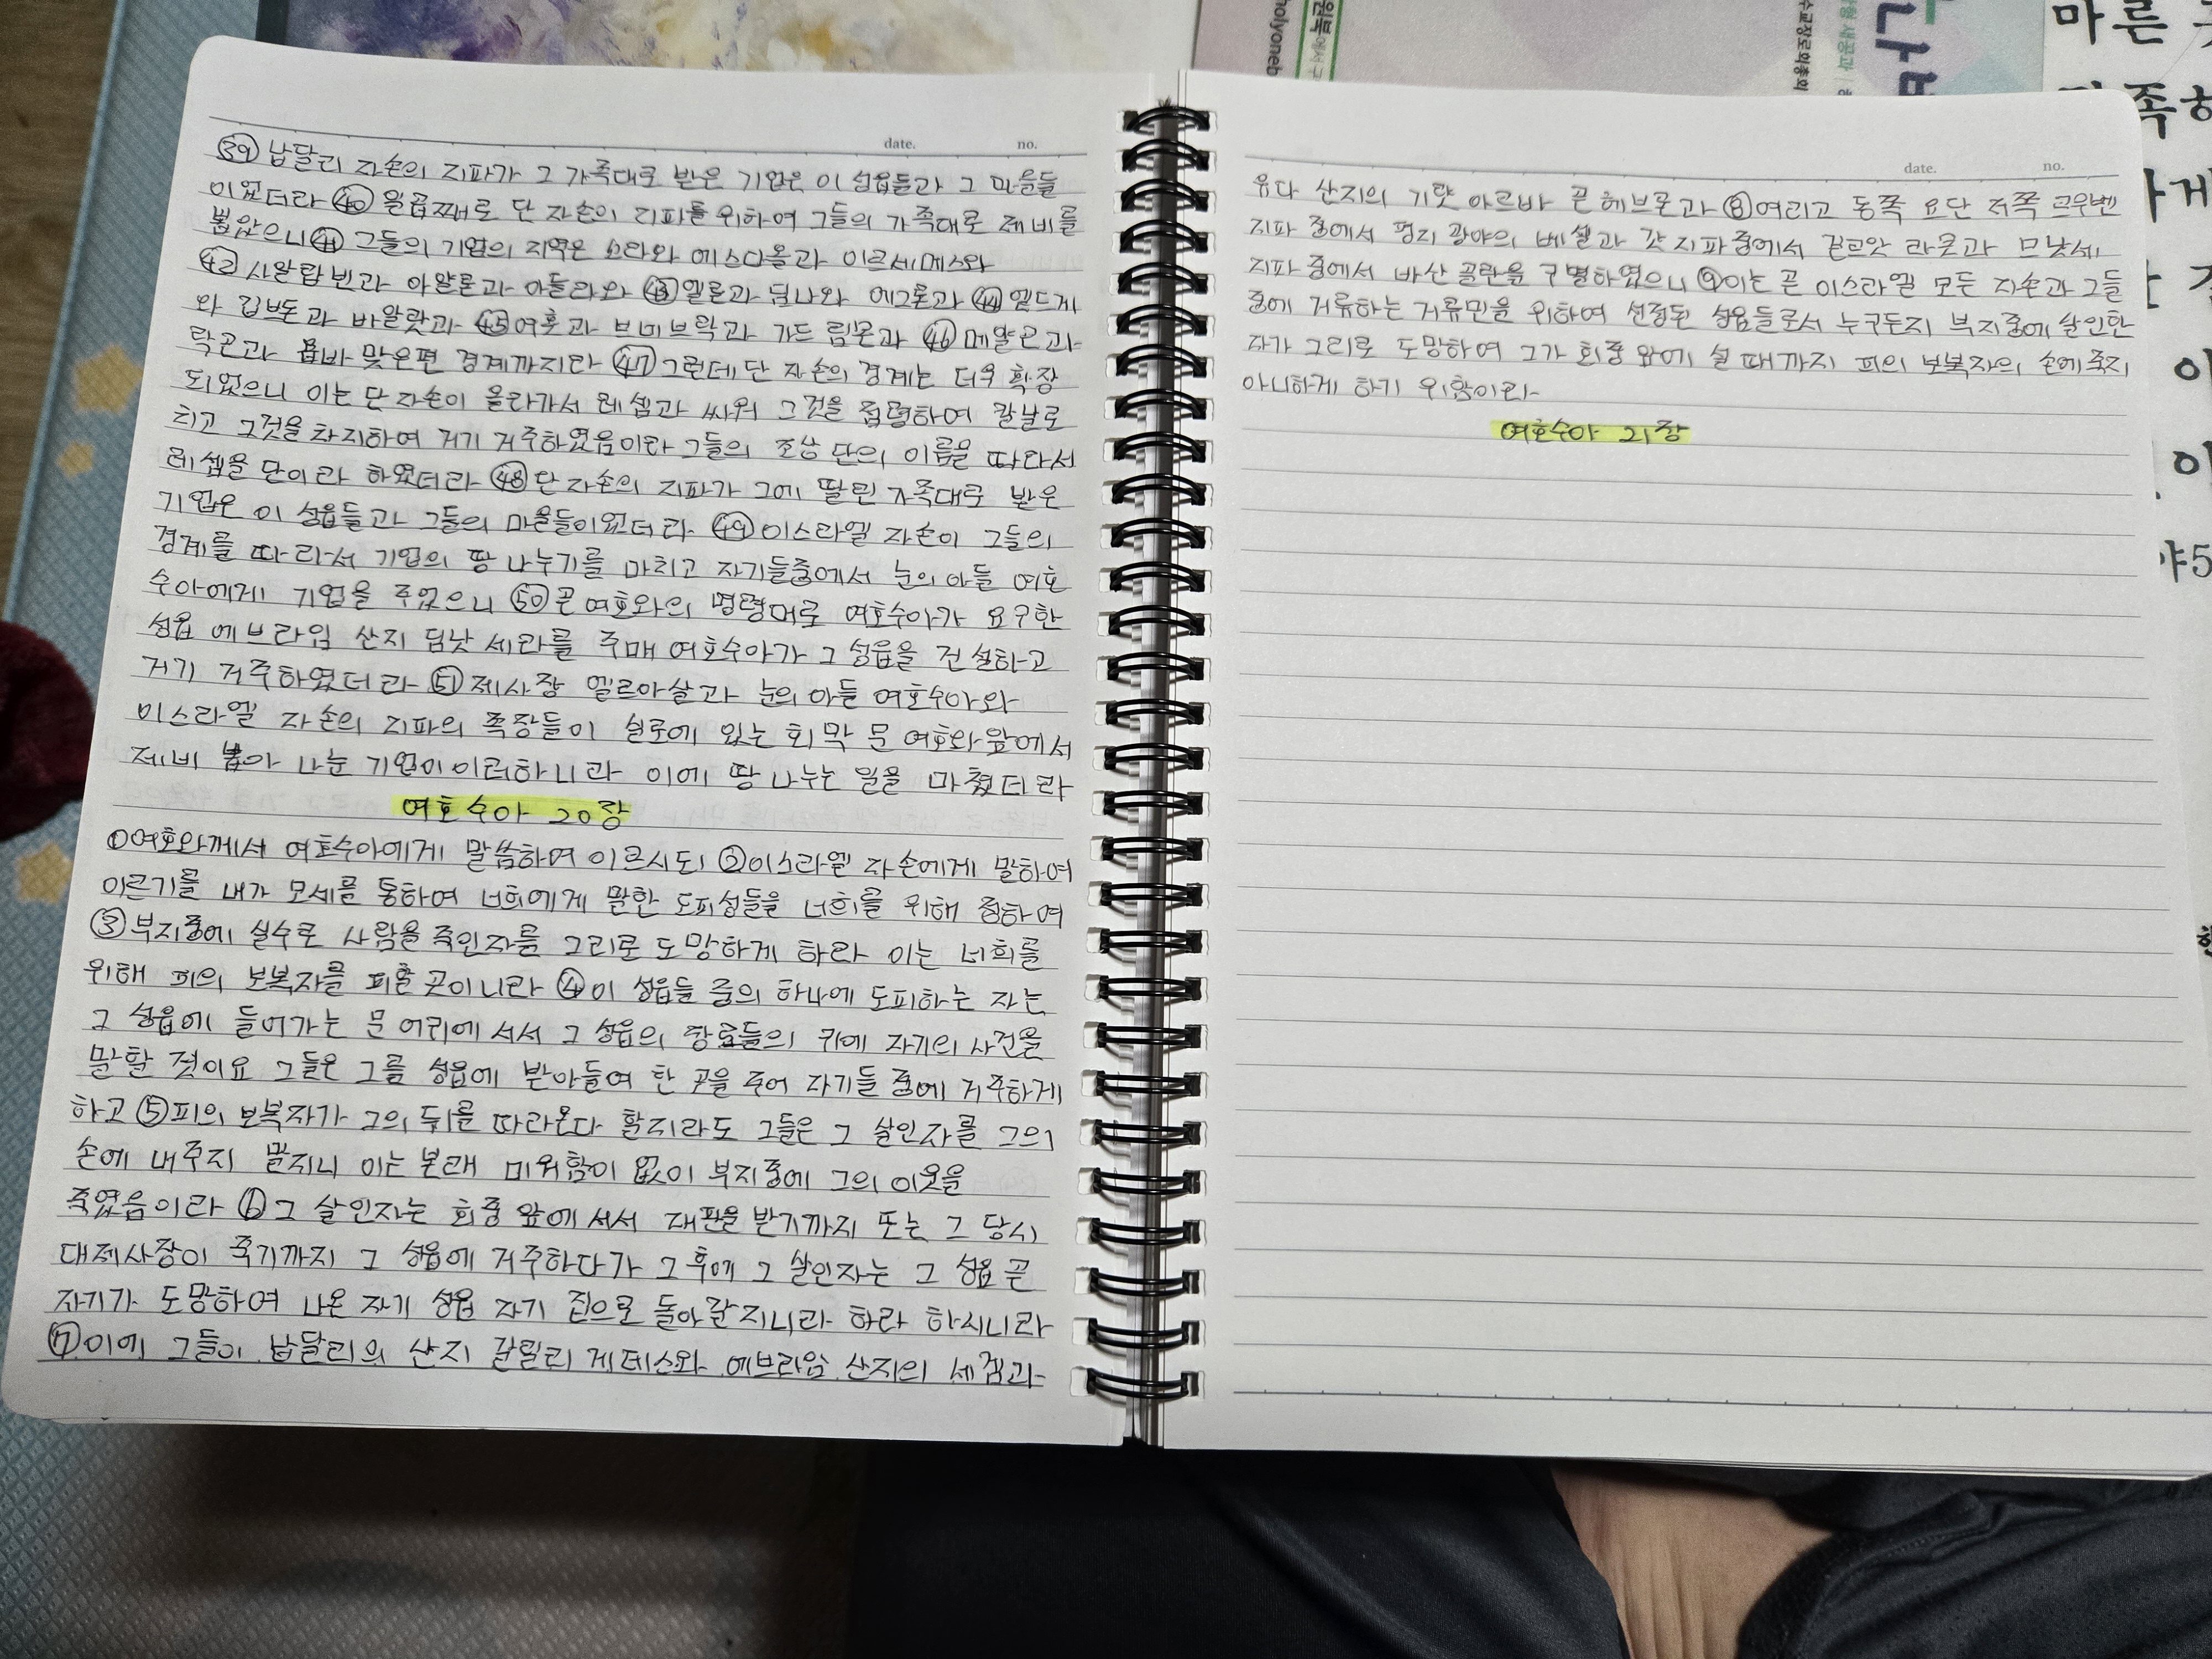 date. no.
㊴ 납달리 자손의 지파가 그 가족대로 받은 기업은 이 성읍들과 그 마을들
이었더라 ㊵ 일곱째로 단 자손의 지파를 위하여 그들의 가족대로 제비를
뽑았으니 ㊶ 그들의 기업의 지역은 소라와 에스다올과 이르세메스와
㊷ 사알랍빈과 아얄론과 이들라와 ㊸ 엘론과 딤나와 에그론과 ㊹ 엘드게
와 깁브돈과 바알랏과 ㊺ 여훗과 브네브락과 가드 림몬과 ㊻ 메얄곤과
락곤과 욥바 맞은편 경계까지라 ㊼ 그런데 단 자손의 경계는 더욱 확장
되었으니 이는 단 자손이 올라가서 레셈과 싸워 그것을 점령하여 칼날로
치고 그것을 차지하여 거기 거주하였음이라 그들의 조상 단의 이름을 따라서
레셈을 단이라 하였더라 ㊽ 단 자손의 지파가 그에 딸린 가족대로 받은
기업은 이 성읍들과 그들의 마을들이었더라 ㊾ 이스라엘 자손이 그들의
경계를 따라서 기업의 땅 나누기를 마치고 자기들중에서 눈의 아들 여호
수아에게 기업을 주었으니 ㊿ 곧 여호와의 명령대로 여호수아가 요구한
성읍 에브라임 산지 딤낫 세라를 주매 여호수아가 그 성읍을 건설하고
거기 거주하였더라 51 제사장 엘르아살과 눈의 아들 여호수아와
이스라엘 자손의 지파의 족장들이 실로에 있는 회막 문 여호와 앞에서
제비 뽑아 나눈 기업이 이러하니라 이에 땅 나누는 일을 마쳤더라
여호수아 20장
①여호와께서 여호수아에게 말씀하여 이르시되 ②이스라엘 자손에게 말하여
이르기를 내가 모세를 통하여 너희에게 말한 도피성들을 너희를 위해 정하여
③부지중에 실수로 사람을 죽인자를 그리로 도망하게 하라 이는 너희를
위해 피의 보복자를 피할 곳이니라 ④이 성읍들 중의 하나에 도피하는 자는
그 성읍에 들어가는 문 어귀에 서서 그 성읍의 장로들의 귀에 자기의 사건을
말할 것이요 그들은 그를 성읍에 받아들여 한 곳을 주어 자기들 중에 거주하게
하고 ⑤피의 보복자가 그의 뒤를 따라온다 할지라도 그들은 그 살인자를 그의
손에 내주지 말지니 이는 본래 미워함이 없이 부지중에 그의 이웃을
죽였음이라 ⑥그 살인자는 회중 앞에 서서 재판을 받기까지 또는 그 당시
대제사장이 죽기까지 그 성읍에 거주하다가 그 후에 그 살인자는 그 성읍 곧
자기가 도망하여 나온 자기 성읍 자기 집으로 돌아갈지니라 하라 하시니라
⑦이에 그들이 납달리의 산지 갈릴리 게데스와 에브라임 산지의 세겜과
date. no.
유다 산지의 기럇 아르바 곧 헤브론과 ⑧여리고 동쪽 요단 저쪽 르우벤
지파 중에서 평지 광야의 베셀과 갓 지파 중에서 길르앗 라못과 므낫세
지파 중에서 바산 골란을 구별하였으니 ⑨이는 곧 이스라엘 모든 자손과 그들
중에 거류하는 거류민을 위하여 선정된 성읍들로서 누구든지 부지중에 살인한
자가 그리로 도망하여 그가 회중 앞에 설 때까지 피의 보복자의 손에 죽지
아니하게 하기 위함이라
여호수아 21장
holyoneb